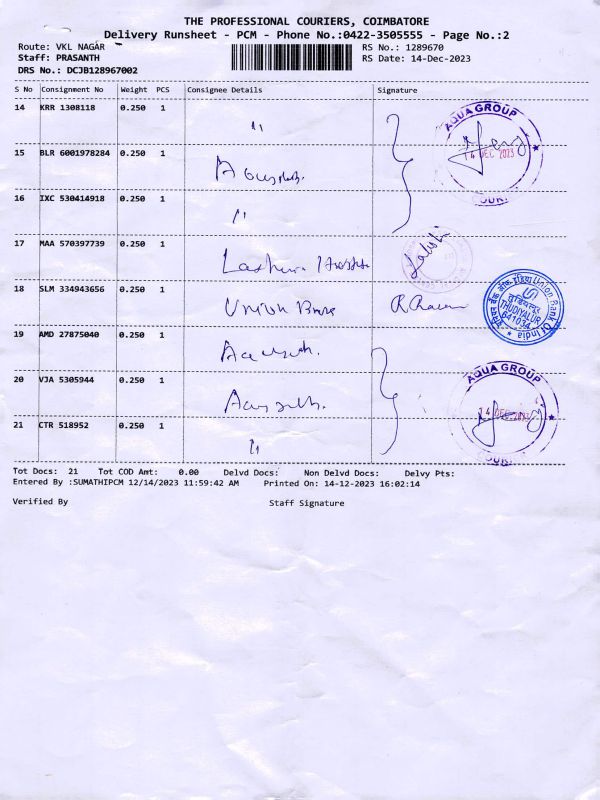 THE PROFESSIONAL COURIERS, COIMBATORE
Delivery Runsheet - PCM - Phone No.:0422-3505555 - Page No.:2
Route: VKL NAGAR RS No.: 1289670
Staff: PRASANTH RS Date: 14-Dec-2023
DRS No.: DCJB128967002
S No Consignment No Weight PCS Consignee Details Signature
14 KRR 1308118 0.250 1 "
AQUA GROUP
14 DEC 2023
15 BLR 6001978284 0.250 1
16 IXC 530414918 0.250 1 "
17 MAA 570397739 0.250 1
18 SLM 334943656 0.250 1 Union Bank
Union Bank Of India
THUDIYALUR
641034
19 AMD 27875040 0.250 1
20 VJA 5305944 0.250 1
AQUA GROUP
14 DEC 2023
21 CTR 518952 0.250 1 "
Tot Docs: 21 Tot COD Amt: 0.00 Delvd Docs: Non Delvd Docs: Delvy Pts:
Entered By :SUMATHIPCM 12/14/2023 11:59:42 AM Printed On: 14-12-2023 16:02:14
Verified By Staff Signature